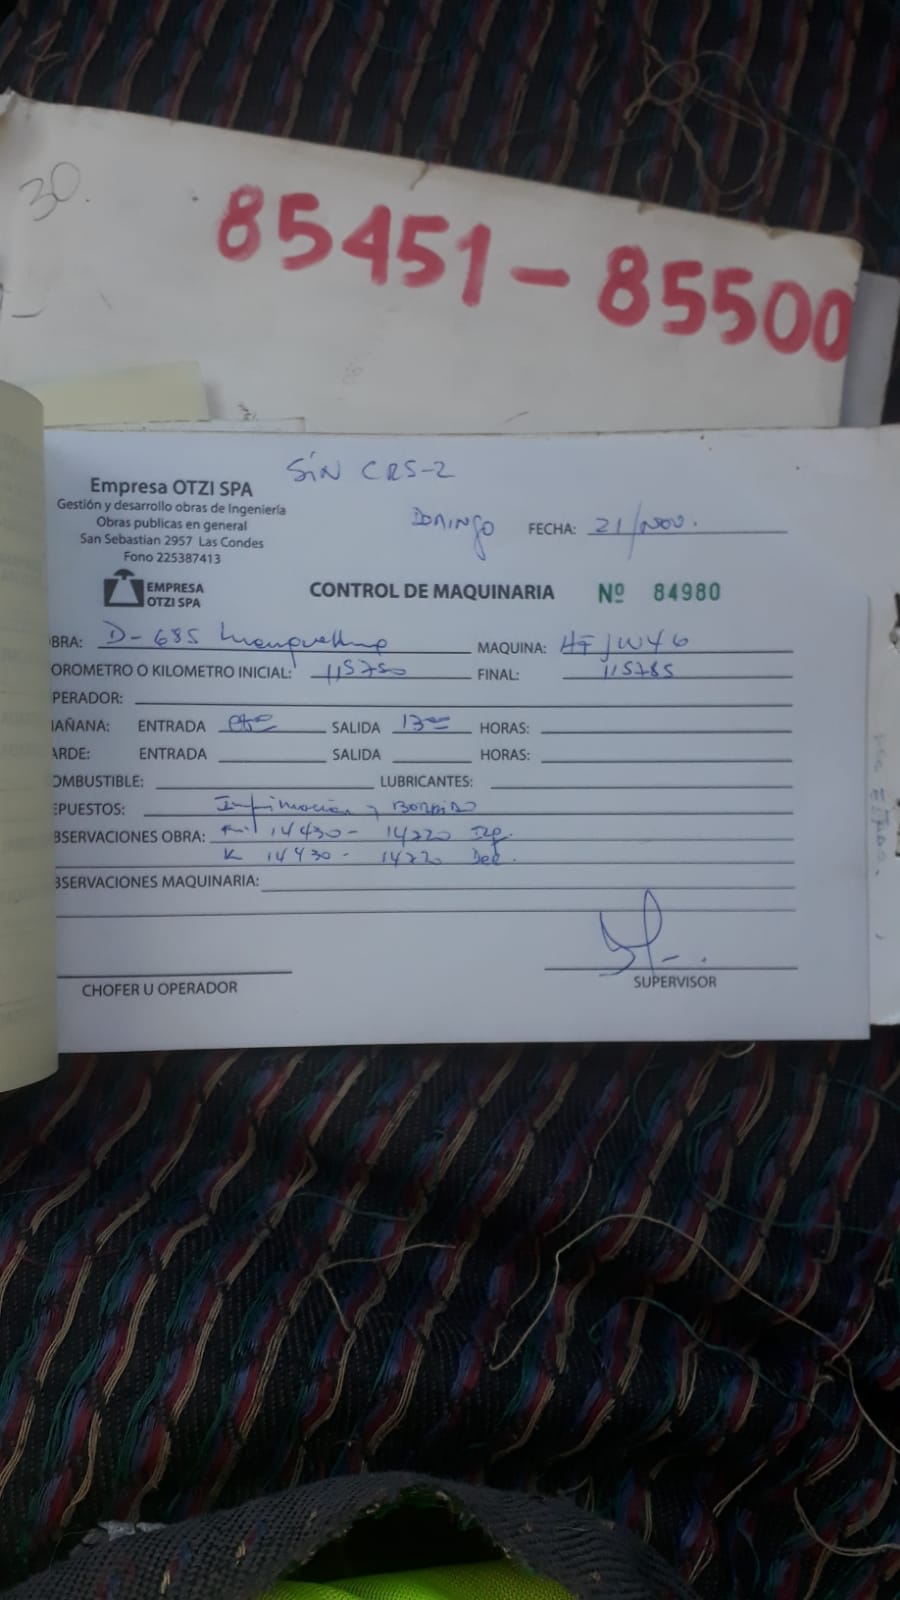 30.
85451-85500
SIN CRS-2
Empresa OTZI SPA
Gestión y desarrollo obras de Ingeniería
Obras publicas en general
San Sebastian 2957 Las Condes
Fono 225387413
DOMINGO FECHA: 21/NOV.
EMPRESA
OTZI SPA
CONTROL DE MAQUINARIA Nº 84980
BRA: D-685 MAQUINA: HFJW46
OROMETRO O KILOMETRO INICIAL: 115750 FINAL: 115785
PERADOR:
AÑANA: ENTRADA SALIDA 1300 HORAS:
ARDE: ENTRADA SALIDA HORAS:
OMBUSTIBLE: LUBRICANTES:
EPUESTOS: Imprimación y
BSERVACIONES OBRA: Km 14430- 14220 Izq.
K 14430- 14220 Der.
BSERVACIONES MAQUINARIA:
CHOFER U OPERADOR
SUPERVISOR